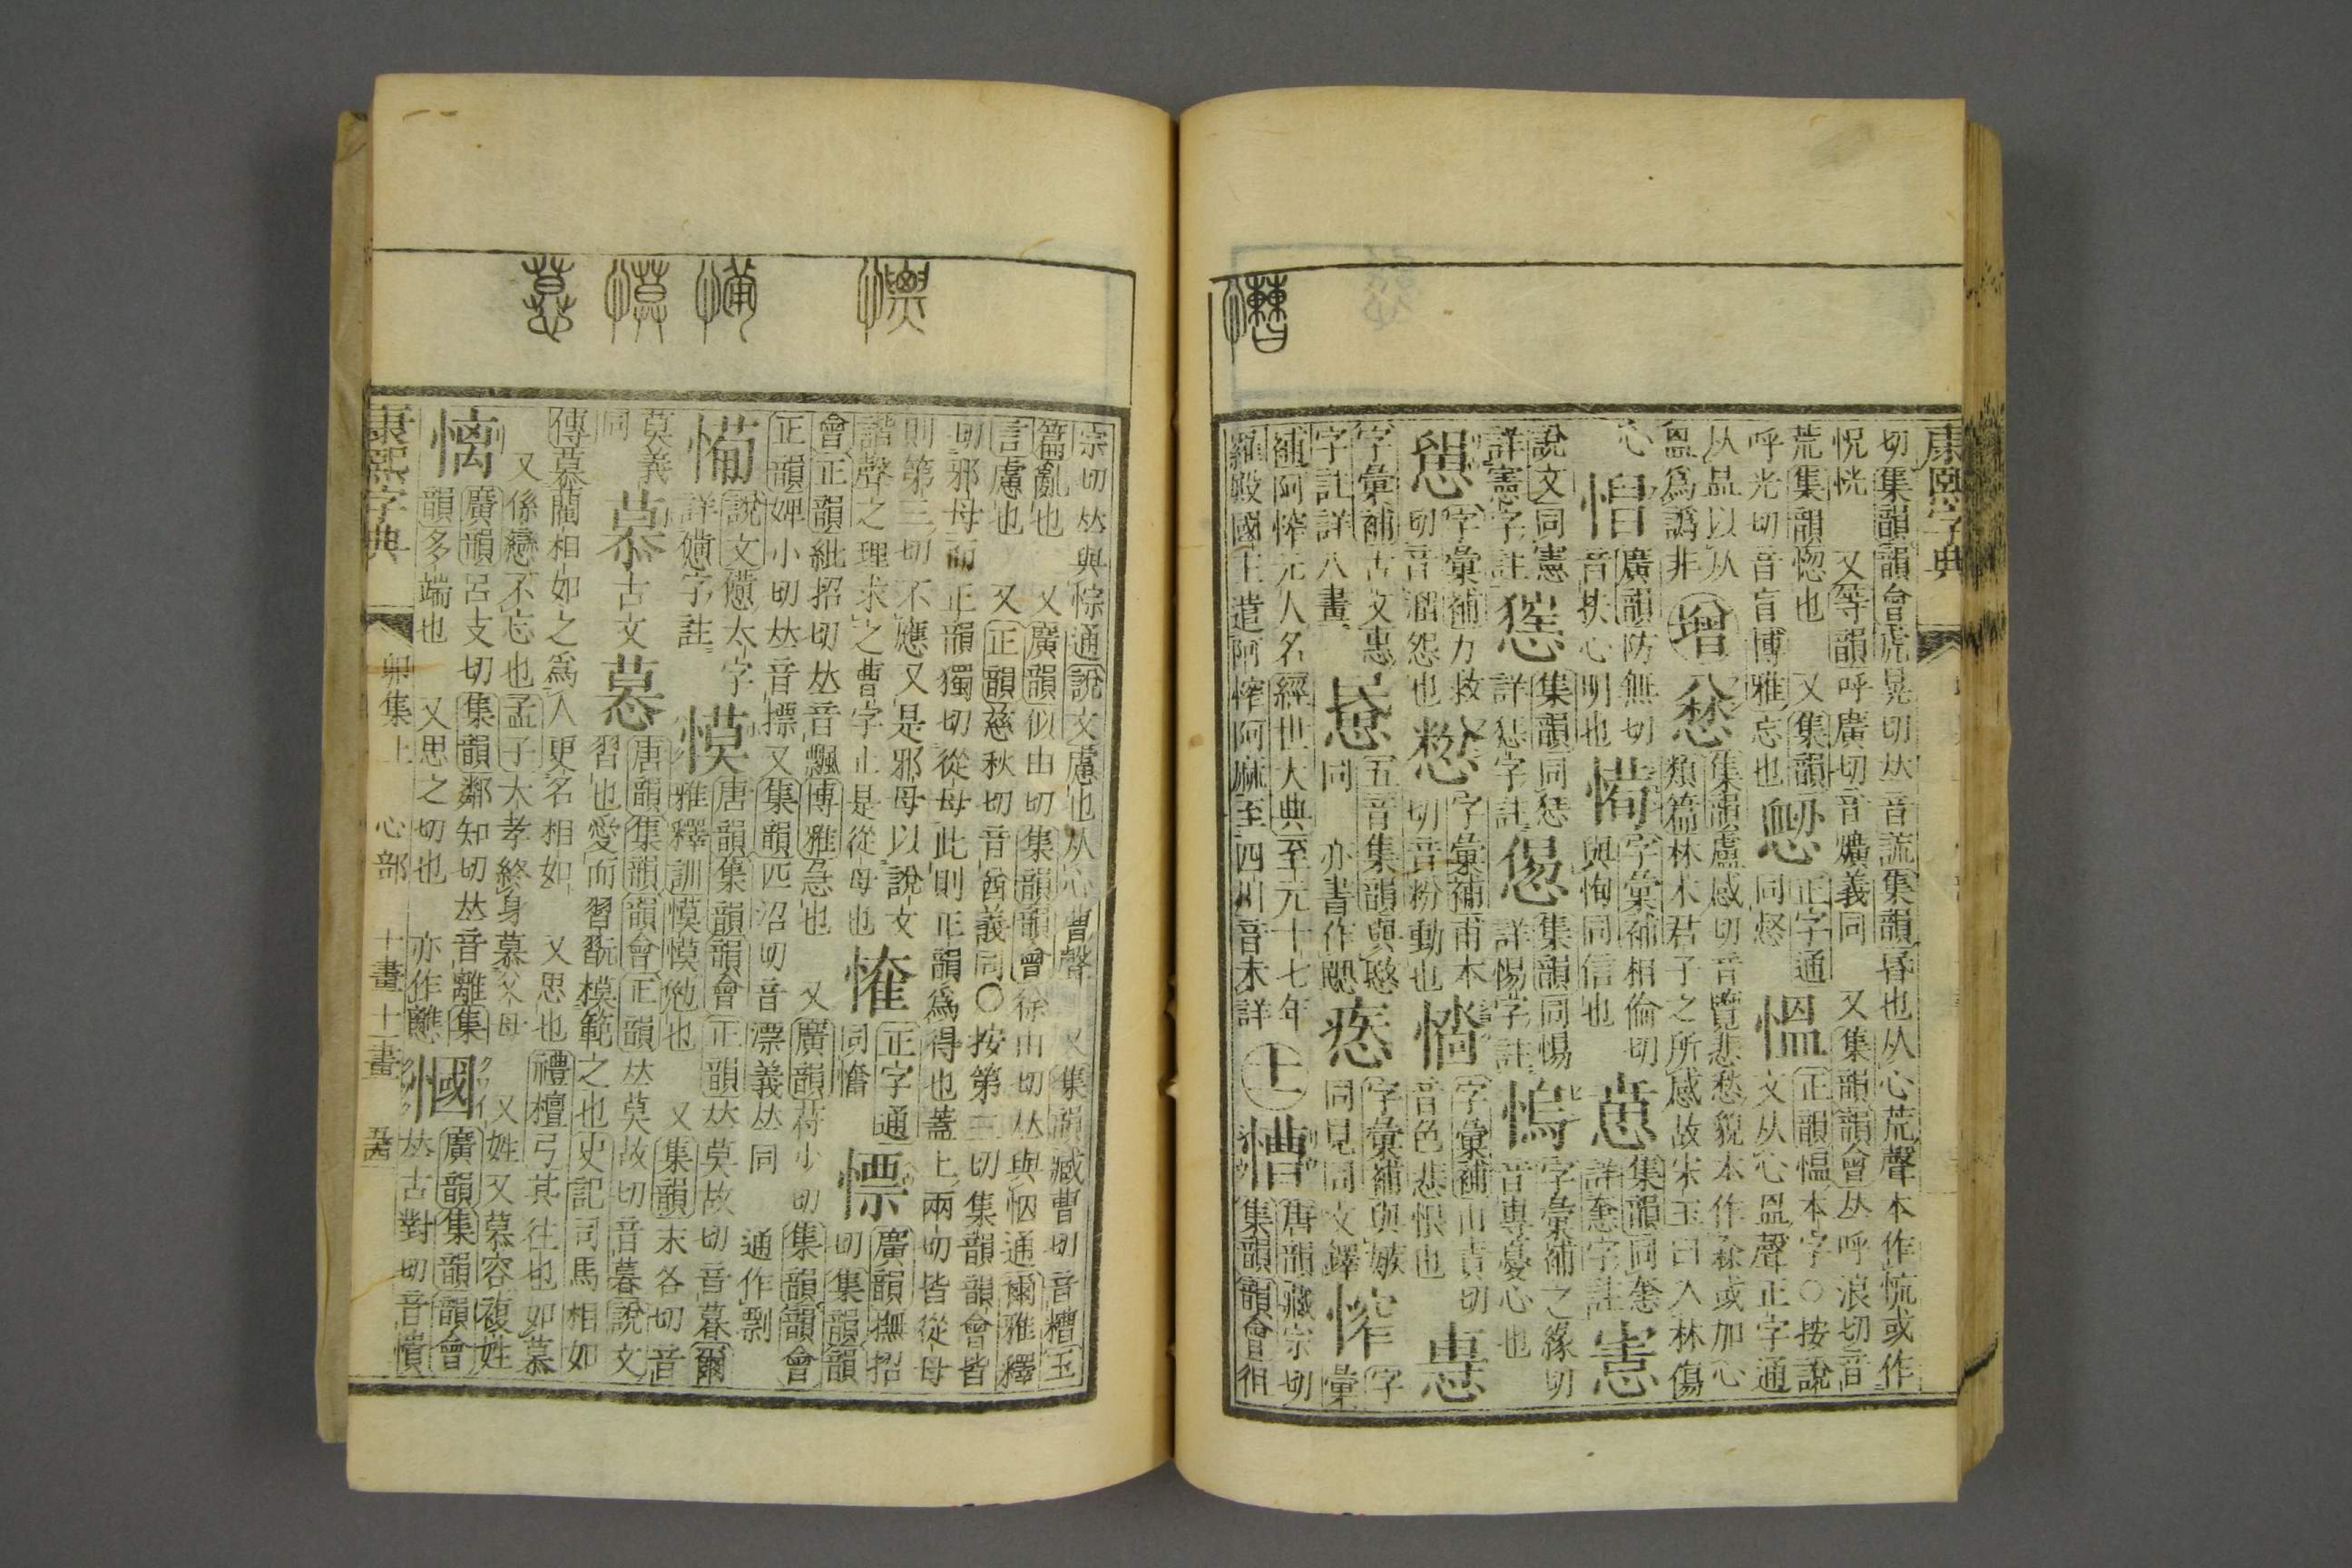 康熙字典
切集韻韻會虎晃切𠀤音謊集韻昬也从心荒聲本作慌或作
怳恍 又等韻呼廣切音爌義同 又集韻韻會𠀤呼浪切音
荒集韻惚也 又集韻
呼光切音盲博雅忘也
正字通
同愍
慍
正韻愠本字○按說
文从心𥁕聲正字通
从昷以从
𥁕爲譌非
增
惏
集韻盧感切音覽悲愁貌本作惏或加心
類篇林木君子之所感故宋玉曰入林傷
心
廣韻防無切
音扶心明也
字彙補相倫切
與恂同信也
集韻同𢙇
詳𢙇字註
說文同憲
詳憲字註
集韻同𢙇
詳𢙇字註
集韻同惕
詳惕字註
字彙補之緣切
音專憂心也
字彙補力救
切音溜怨也
字彙補甫本
切音粉動也
字彙補山責切
音色悲恨也
字彙補
古文惠
字註詳八畫
五音集韻與愍
同 亦書作
字彙補與嫉
同見同文鐸
㤰
字
彙
補阿㤰元人名經世大典至元十七年
羅殿國王遣阿㤰阿麻至四川音未詳
十一
慒
唐韻藏宗切
集韻韻會徂
宗切𠀤與悰通說文慮也从心曹聲 又集韻臧曹切音糟玉
篇亂也 又廣韻似由切集韻韻會徐由切𠀤與㤜通爾雅釋
言慮也 又正韻慈秋切音酋義同○按第二切集韻韻會皆
切邪母而正韻獨切從母此則正韻爲得也蓋上兩切皆從母
則第三切不應又是邪母以說文
諧聲之理求之曹字止是從母也
慛
正字通
同慻
慓
廣韻撫招
切集韻韻
會正韻紕招切𠀤音飄博雅急也 又廣韻苻小切集韻韻會
正韻婢小切𠀤音摽又集韻匹沼切音漂義𠀤同 通作剽
㣁
說文憊本字
詳憊字註
慔
唐韻集韻韻會正韻𠀤莫故切音暮爾
雅釋訓慔慔勉也 又集韻末各切音
莫義
同
慕
古文
𢟽
唐韻集韻韻會正韻𠀤莫故切音暮說文
習也愛而習翫模範之也史記司馬相如
傳慕藺相如之爲人更名相如 又思也禮檀弓其往也如慕
又係戀不忘也孟子大孝終身慕父母 又姓又慕容複姓
𢟢
廣韻呂支切集韻鄰知切𠀤音離集
韻多端也 又思之切也 亦作𢥗
慖
廣韻集韻韻會
𠀤古對切音憒
康熙字典
卯集上 心部 十畫十一畫